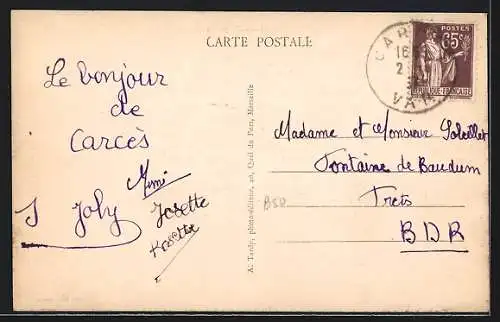 CARTE POSTALE
Le bonjour
de
Carcès
Mimi
J Joly Josette
A. Tardy, photo-éditeur, 20, Quai du Port, Marseille
POSTES
65c
RÉPUBLIQUE FRANÇAISE
CAR
VAR
Madame et Monsieur
Fontaine de Baudum
Trets
BDR